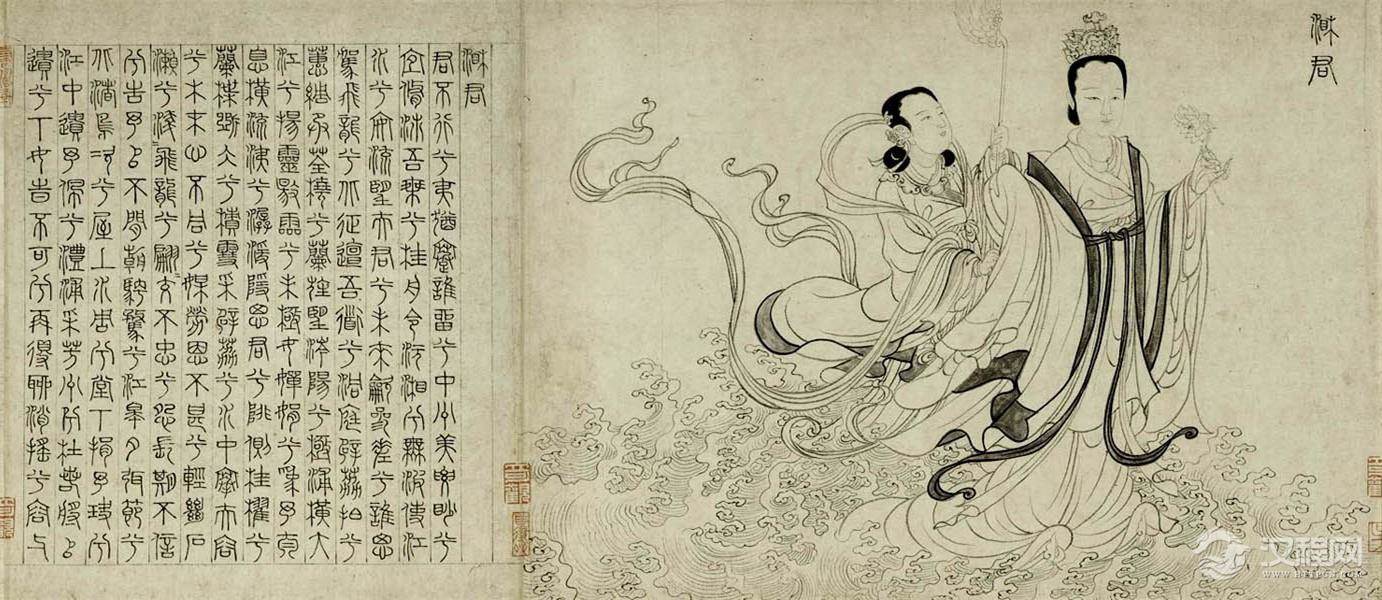 湘君
湘君
君不行兮夷猶蹇誰留兮中州美要眇兮
宜脩沛吾乘兮桂舟令沅湘兮無波使江
水兮安流望夫君兮未來歙參差兮誰思
駕飛龍兮北征邅吾道兮洞庭薜荔拍兮
蕙綢承荃橈兮蘭旌望涔陽兮極浦橫大
江兮揚靈揚靈兮未極女嬋媛兮為予太
息橫流涕兮潺湲隱思君兮陫側桂櫂兮
蘭枻斲冰兮積雪采薜荔兮水中搴芙容
兮木末心不同兮媒勞恩不甚兮輕絕石
瀨兮淺〻飛龍兮翩〻交不忠兮怨長期不信
兮告予以不閒朝騁騖兮江皋夕弭節兮
北渚鳥次兮屋上水周兮堂下捐予玦兮
江中遺予佩兮澧浦采芳州兮杜若將以
遺兮下女時不可兮再得聊消搖兮容與
汉程网
WWW.HTTPCN.COM